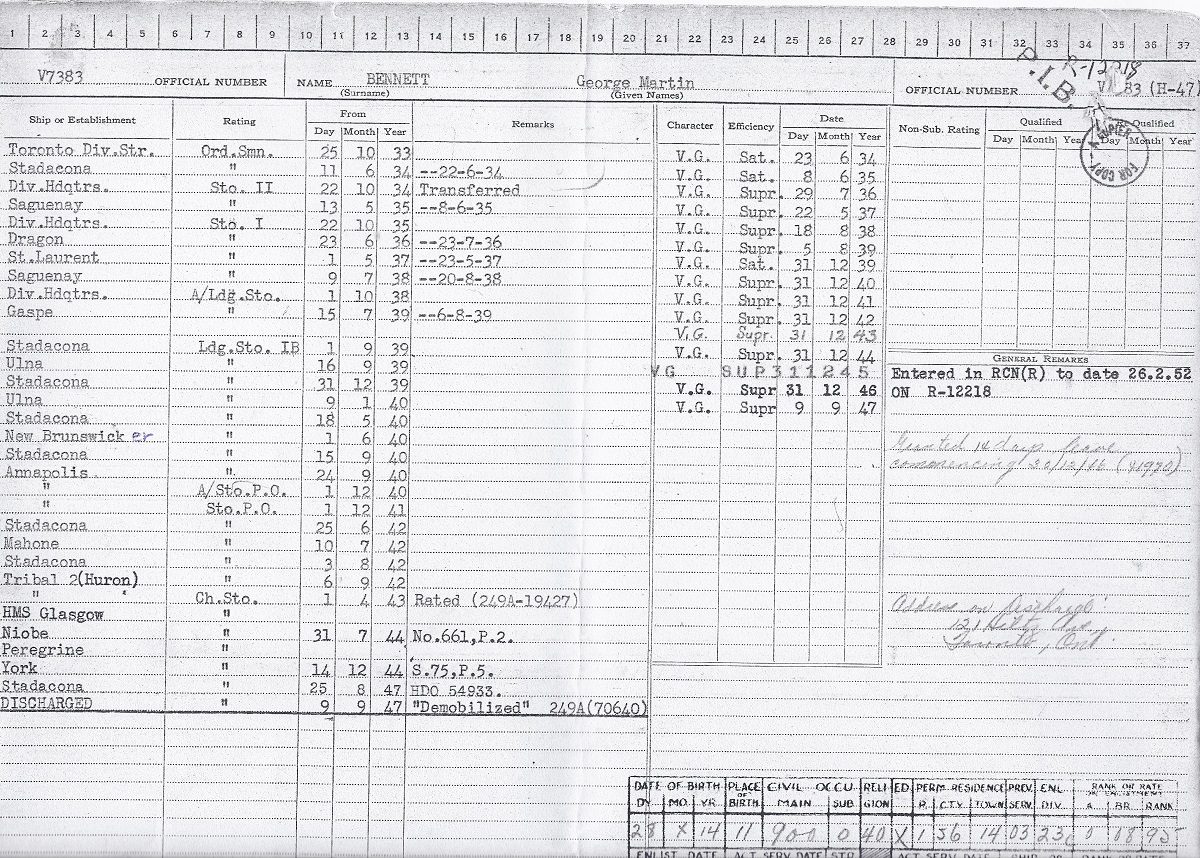 1 2 3 4 5 6 7 8 9 10 11 12 13 14 15 16 17 18 19 20 21 22 23 24 25 26 27 28 29 30 31 32 33 34 35 36 37
V7383 OFFICIAL NUMBER NAME BENNETT George Martin OFFICIAL NUMBER 83 (H-47)
(Surname) (Given Names)
R-12218
P.I.B.
FOR COPY
Ship or Establishment Rating From Remarks
Day Month Year
Toronto Div.Str. Ord.Smn. 25 10 33
Stadacona " 11 6 34 --22-6-34
Div.Hdqtrs. Sto. II 22 10 34 Transferred
Saguenay " 13 5 35 --8-6-35
Div.Hdqtrs. Sto. I 22 10 35
Dragon " 23 6 36 --23-7-36
St.Laurent " 1 5 37 --23-5-37
Saguenay " 9 7 38 --20-8-38
Div.Hdqtrs. A/Ldg.Sto. 1 10 38
Gaspe " 15 7 39 --6-8-39
Stadacona Ldg.Sto. IB 1 9 39
Ulna " 16 9 39
Stadacona " 31 12 39
Ulna " 9 1 40
Stadacona " 18 5 40
New Brunswick er " 1 6 40
Stadacona " 15 9 40
Annapolis " 24 9 40
" A/Sto.P.O. 1 12 40
" Sto.P.O. 1 12 41
Stadacona " 25 6 42
Mahone " 10 7 42
Stadacona " 3 8 42
Tribal 2(Huron) " 6 9 42
" Ch.Sto. 1 4 43 Rated (249A-19427)
HMS Glasgow "
Niobe " 31 7 44 No.661,P.2.
Peregrine "
York " 14 12 44 S.75,P.5.
Stadacona " 25 8 47 HDO 54933.
DISCHARGED " 9 9 47 "Demobilized" 249A(70640)
Character Efficiency Date
Day Month Year
V.G. Sat. 23 6 34
V.G. Sat. 8 6 35
V.G. Supr. 29 7 36
V.G. Supr. 22 5 37
V.G. Supr. 18 8 38
V.G. Supr. 5 8 39
V.G. Sat. 31 12 39
V.G. Supr. 31 12 40
V.G. Supr. 31 12 41
V.G. Supr. 31 12 42
V.G. Supr. 31 12 43
V.G. Supr. 31 12 44
VG SUP 31 12 45
V.G. Supr 31 12 46
V.G. Supr 9 9 47
Non-Sub. Rating Qualified Qualified
Day Month Year Day Month Year
GENERAL REMARKS
Entered in RCN(R) to date 26.2.52
ON R-12218
Granted 14 days leave
commencing 20/12/46
Address on Discharge:
121 Ave,
Toronto, Ont
DATE OF BIRTH PLACE OF BIRTH CIVIL OCCU. RELIGION ED. PERM RESIDENCE PREV. SERV. ENL. DIV. RANK OR RATE ON ENLISTMENT
DY. MO. YR. MAIN SUB. P. CTY. TOWN A. BR. RANK
28 X 14 11 900 0 40 X 1 56 14 03 23 0 08 95
ENLIST DATE ACT SERV DATE STR